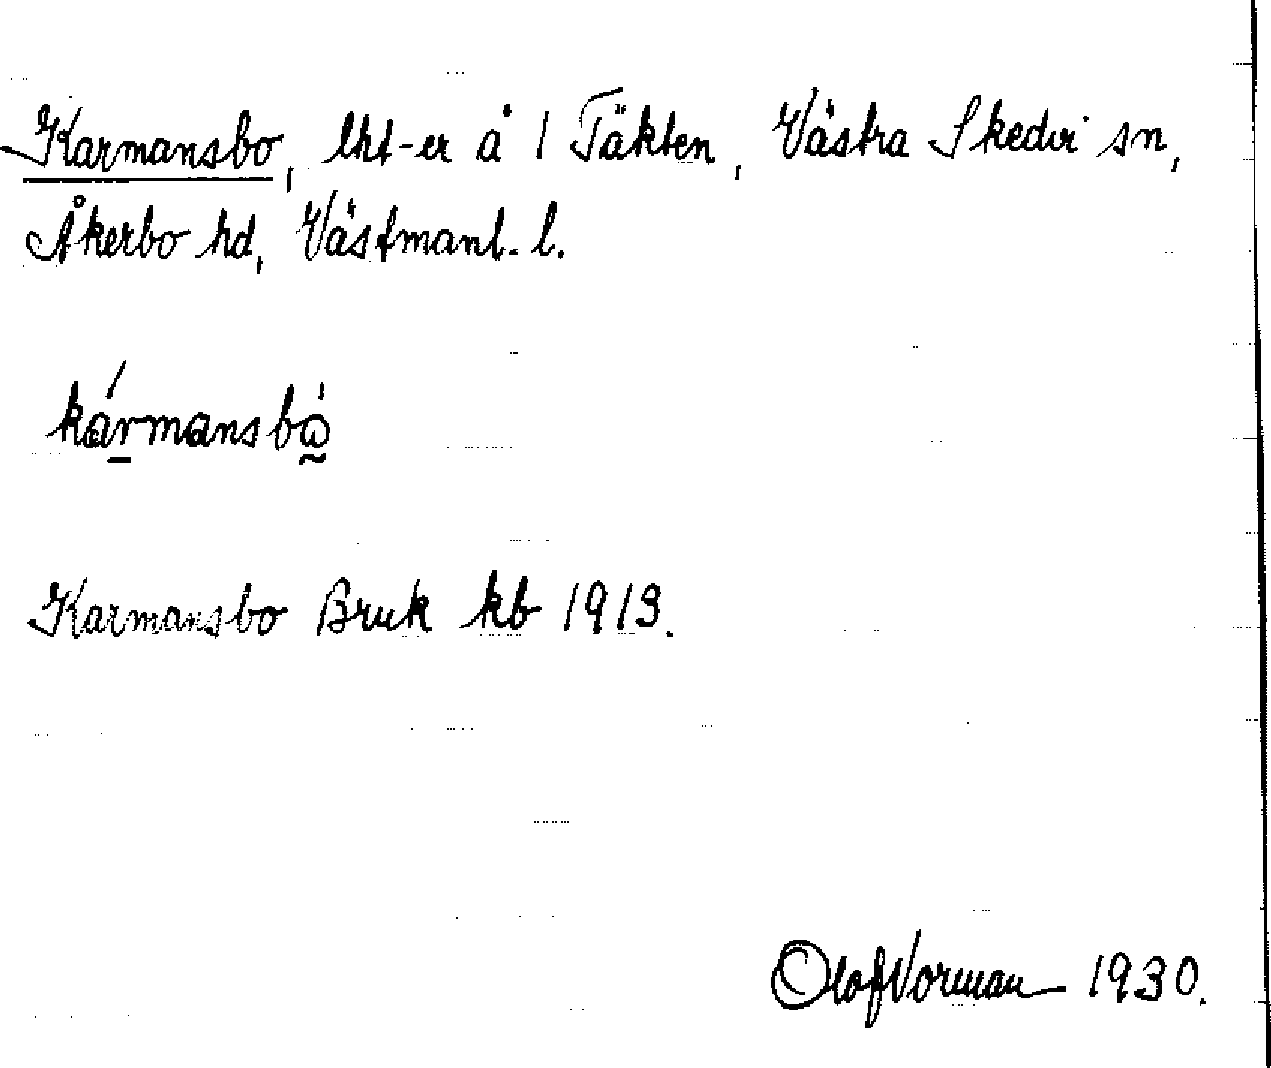 Karmansbo, lht-er å 1 Täkten, Västra Skedvi sn,
Åkerbo hd, Västmanl. l.
kármansbò̰
Karmansbo Bruk kb 1913.
Olof Norman 1930.